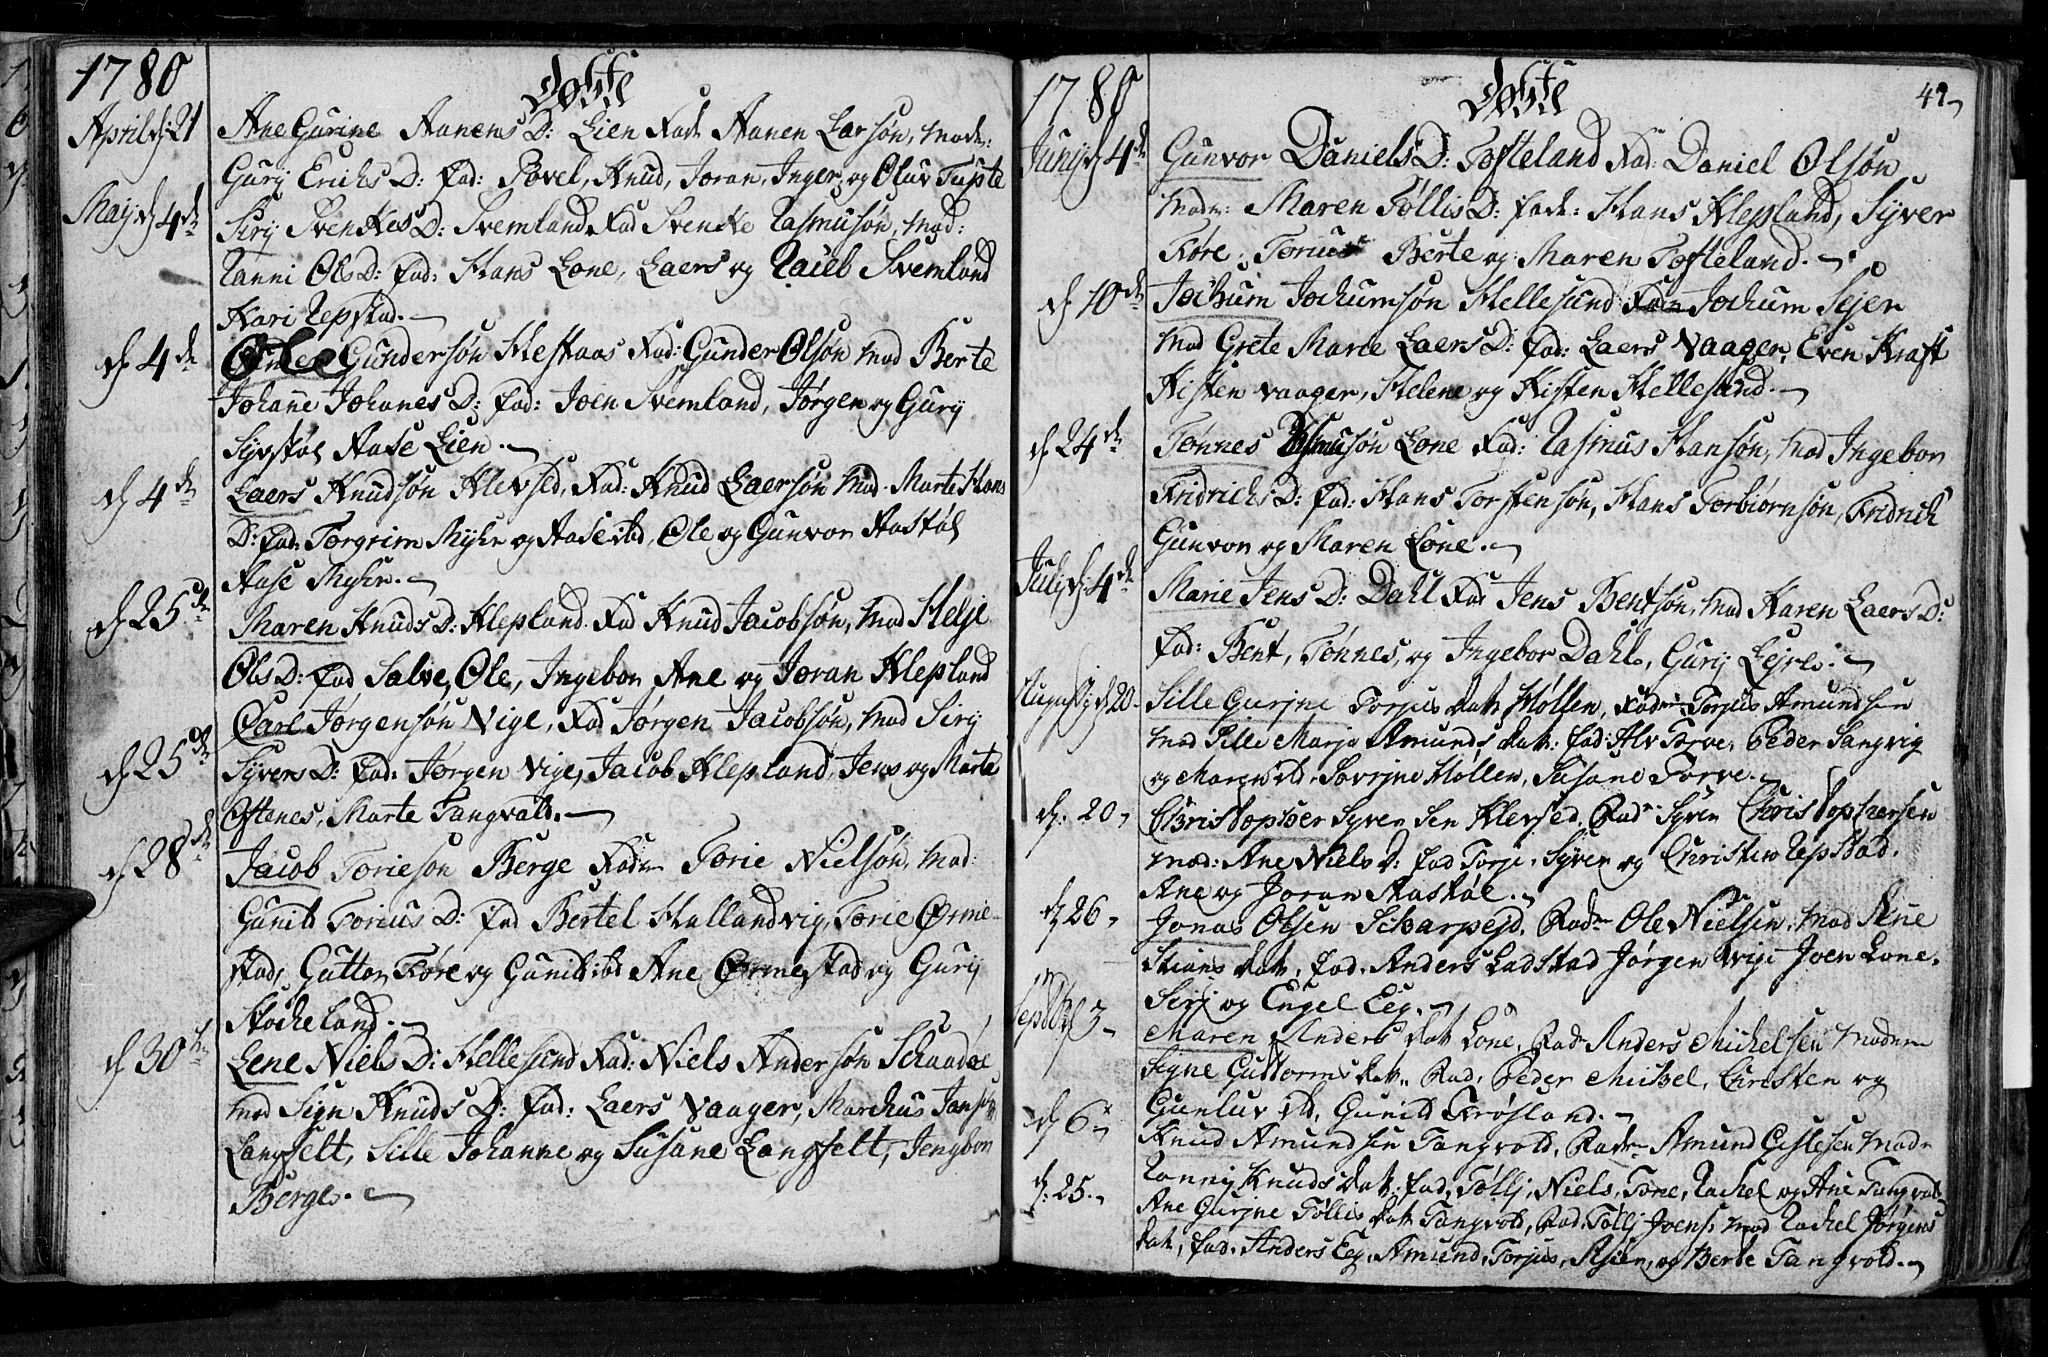 1780
Døbte
April d. 21 Ane Gurine Aanens D: Lien Fad Aanen Larsøn, Mod:
Gurij Erichs D: Fad: Povel, Knud, Joran, Inger og Oluv Tupte
Maij d. 4de Sirij Svenkes D: Svemland Fad Svenke Rasmusøn, Mod:
Ranni Ols D: Fad: Hans Lone, Laers og Raieb Svemland
Kari Repstad.
d. 4de Gundersøn Meskaas Fad: Gunder Olsøn Mod Berte
Johane Johanes D: Fad: Joen Svemland, Jørgen og Gurij
Syvstøl Aase Lien.
d. 4de Laers Knudsøn Klevsed, Fad: Knud Laersøn Mod. Marte Hans
D: Fad: Torgrim Myhr og Aase ibd, Ole og Gunvor Aastøl
Aase Myhr.
d. 25de Maren Knuds D: Klepland. Fad Knud Jacobsøn, Mod Helje
Ols D: Fad Salve, Ole, Ingebor, Ane og Joran Klepland
d. 25de Carl Jørgensøn Vige, Fad Jørgen Jacobsøn, Mod Sirij
Syvers D: Fad: Jørgen Vige, Jacob Klepland, Jens og Marte
Oftenes, Marte Tangvald.
d. 28de Jacob Toriesøn Berge Fader Torie Nielsøn, Mod:
Gunild Torius D: Fad Bertel Hallandvig, Torie Ørme-
stad, Guttor, Føre og Gunild ibd Ane Ørmestad og Gurij
Stocheland.
d. 30te Lene Niels D: Hellesund Fad: Niels Andersøn Schaadøe
Mod Sign Knuds D: Fad: Laers Vaager, Marchus Jansøn
Langfelt, Sille Johanne og Susane Langfelt, Jengbor
Berge.
1780
Døbte
49
Junij d. 4de Gunvor Daniels D: Tofteland Fad: Daniel Olsøn
Moder: Maren Tøllis D: Fad: Hans Klepland, Syver
Føre, Torius Berte og Maren Tofteland.
d. 10de Jochum Jochumsøn Hellesund Fad Jochum Sejer
Mod Grete Marie Laers D: Fad: Laers Vaager, Even Kraft
Kisten Vaager, Helene og Kisten Hellesund.
d. 24de Tønnes Rasmusøn Lone Fad: Rasmus Hansøn, Mod Ingebor
Fridrichs D: Fad: Hans Torstensøn, Hans Torbiørnsøn, Fridrich
Gunvor og Maren Lone.
Julij d. 4de Marie Jens D: Dahl Fad Jens Bentsøn, Mod Karen Laers D:
Fad: Bent, Tønnes, og Ingebor Dahl, Gurij Lejre.
Augustj d. 20 Sille Gurjne Torjus dat Høllen, Fader Torjus Amundsen
Mod Sille Marja Amunds dat: Fad: Alv Torve, Peder Sangvig
og Maren ibd, Sovrjne Høllen, Susane Torve.
d. 20 Christopher Syversen Klevsed, Fad: Syver Christophersen
Mod: Ane Niels D: Fad Torje, Syver og Christen Repstad,
Ane og Joran Aastøl.
d. 26 Jonas Olsen Scharpejd, Fader Ole Nielsen, Mod Ane
Stians dat, Fad. Anders Ladstad Jørgen Vige Joen Lone,
Serj og Engel Eeg.
Septbr d. 3 Maren Anders dat Lone, Fad Anders Michelsen Moder
Segne Guttorms dat, Fad, Peder Michel, Christen og
Gunluv ibd, Gunild Frøsland.
d. 6 Knud Amundsen Tangvold, Fader Amund Gislesen Moder
Ranni Knuds dat, Fad, Tøllj, Niels, Tore, Rachel og Ane Tangvold
d. 25 Ane Gurjne Tøllis dat Tangvold, Fad, Tøllj Joens. Mod Rachel Jørgens
dat, Fad. Anders Eeg, Amund, Torjus, Asier, og Berte Tangvold.